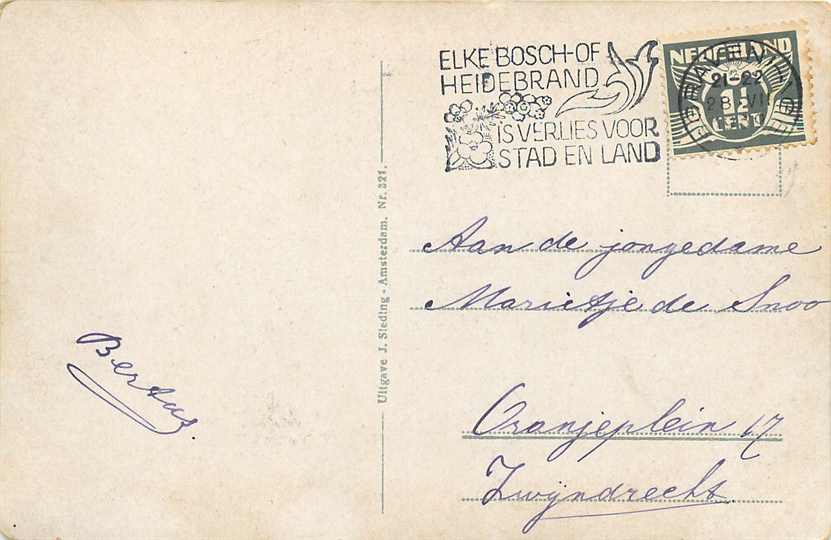 ELKE BOSCH-OF
HEIDEBRAND
IS VERLIES VOOR
STAD EN LAND
NEDERLAND
1½
CENT
21-22
28 VII
Uitgave J. Sleding - Amsterdam. Nr. 321.
Aan de jongedame
Marietje de Snoo
Oranjeplein 17
Zwijndrecht
Bertus